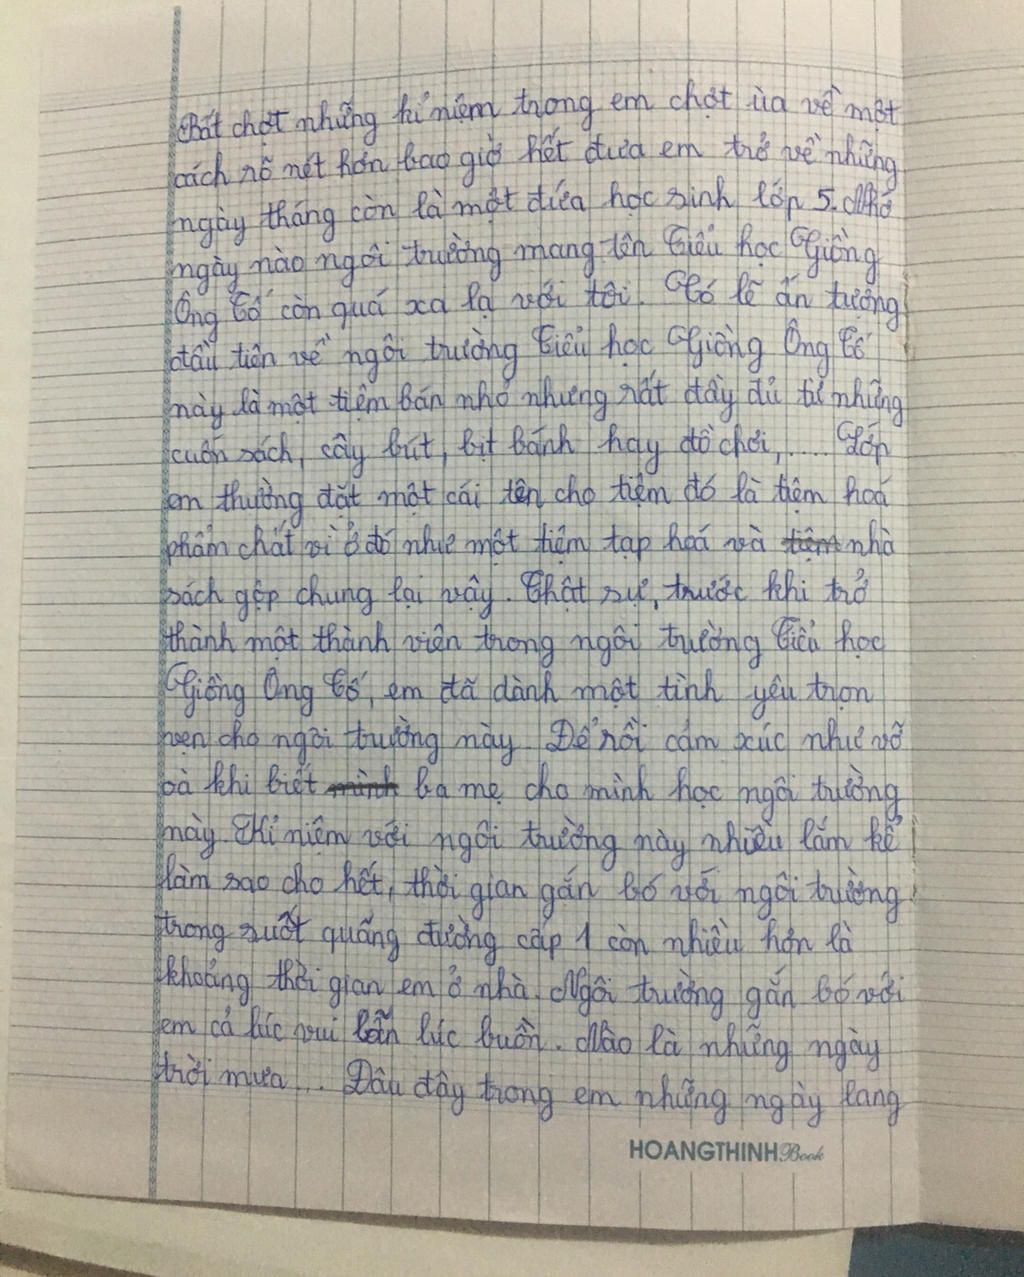 Bất chợt những kí niệm trong em chợt ùa về một
cách rõ nét hơn bao giờ hết đưa em trở về những
ngày tháng còn là một đứa học sinh lớp 5. Nhớ
ngày nào ngôi trường mang tên Tiểu học Giồng
Ông Tố còn quá xa lạ với tôi. Có lẽ ấn tượng
đầu tiên về ngôi trường Tiểu học Giồng Ông Tố
này là một tiệm bán nhỏ nhưng rất đầy đủ từ những
cuốn sách, cây bút, bịt bánh hay đồ chơi,..... Lớp
em thường đặt một cái tên cho tiệm đó là tiệm hoá
phẩm chất vì ở đó như một tiệm tạp hoá và tiệm nhà
sách gộp chung lại vậy. Thật sự, trước khi trở
thành một thành viên trong ngôi trường Tiểu học
Giồng Ông Tố, em đã dành một tình yêu trọn
vẹn cho ngôi trường này. Để rồi cảm xúc như vỡ
oà khi biết mình ba mẹ cho mình học ngôi trường
này. Kí niệm với ngôi trường này nhiều lắm kể
làm sao cho hết, thời gian gắn bó với ngôi trường
trong suốt quãng đường cấp 1 còn nhiều hơn là
khoảng thời gian em ở nhà. Ngôi trường gắn bó với
em cả lúc vui lẫn lúc buồn. Nào là những ngày
trời mưa... Đâu đây trong em những ngày lang
HOANGTHINH Book